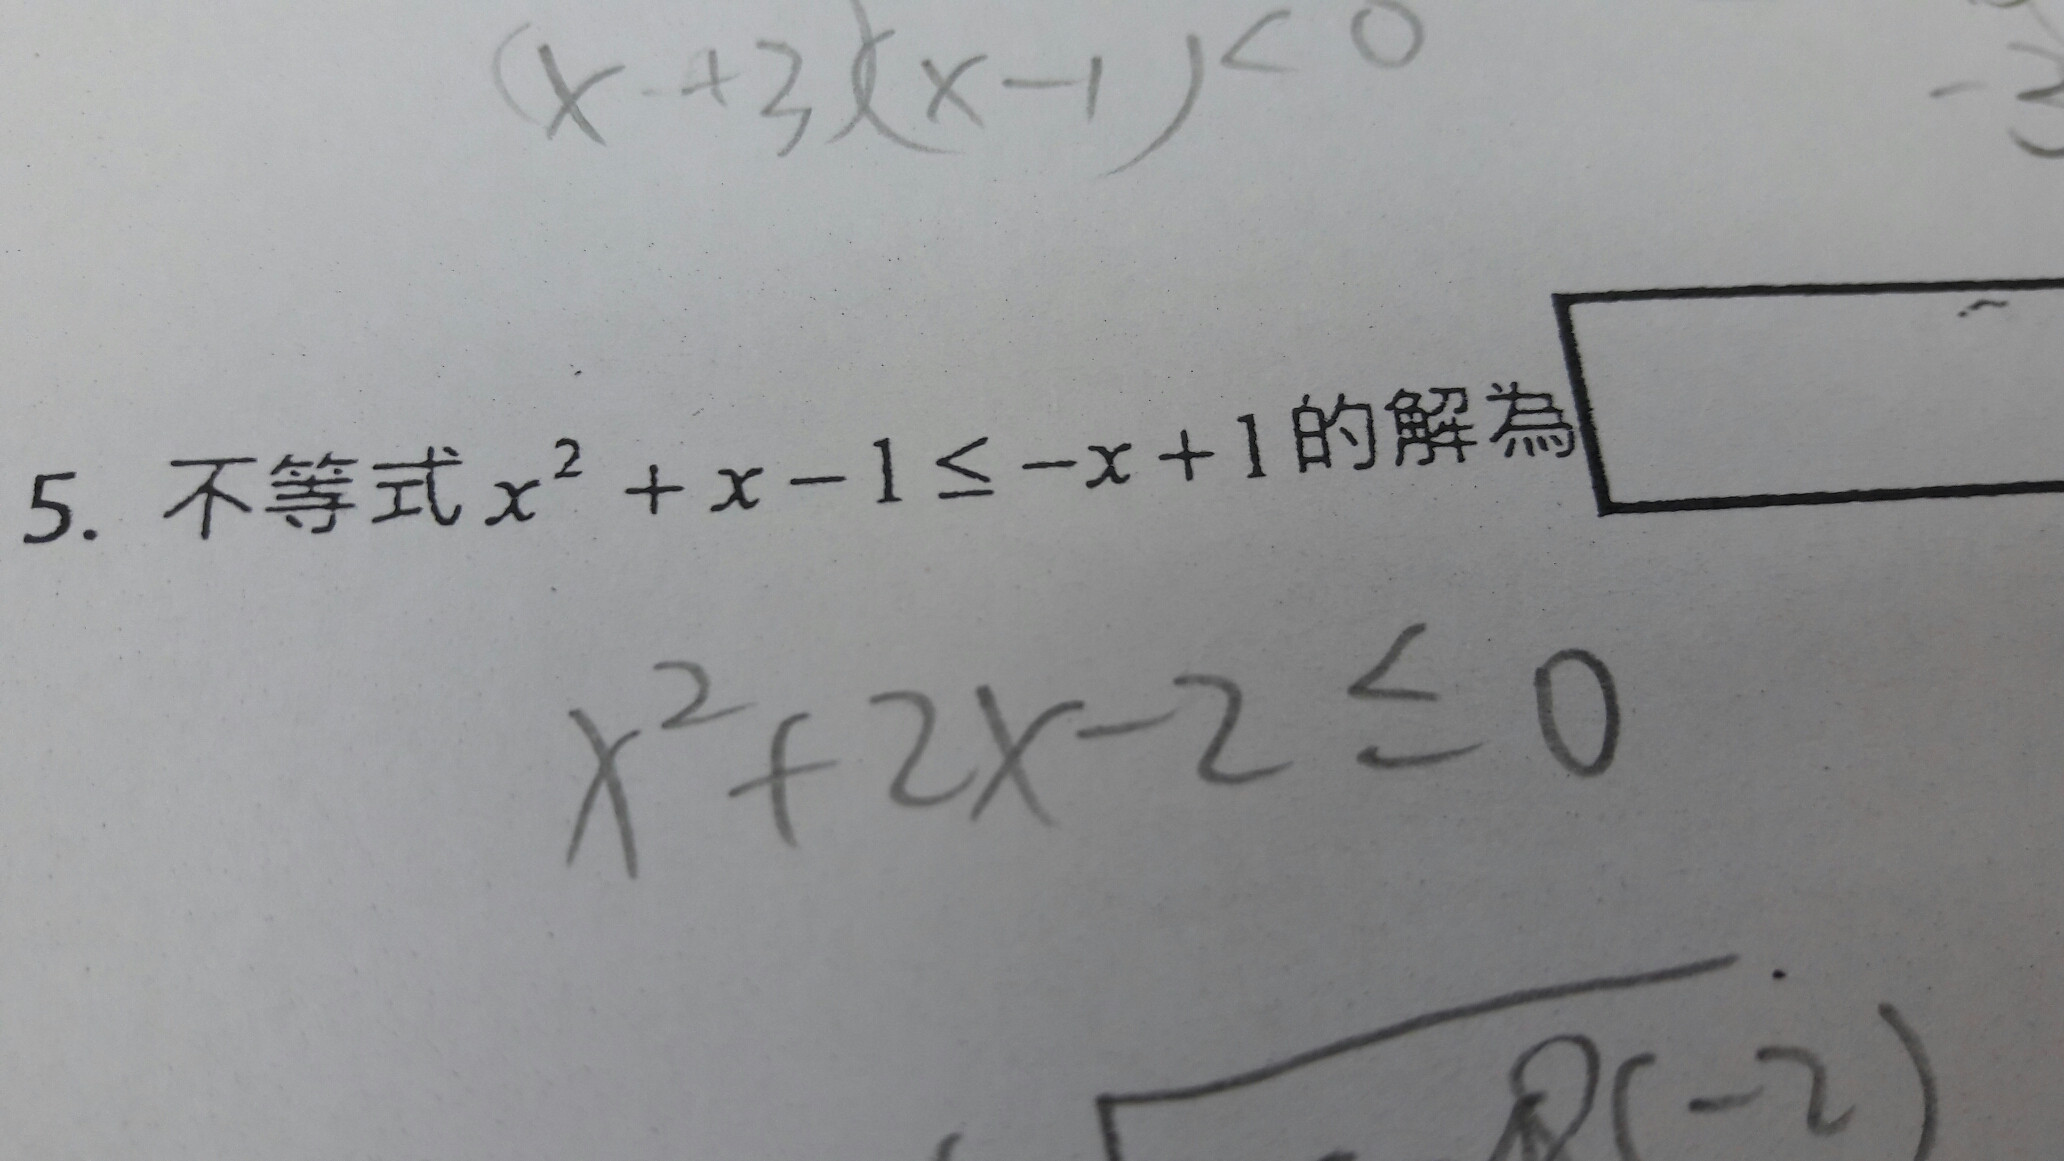 (x+3)(x-1)<0
5. 不等式 x² + x − 1 ≤ −x + 1 的解為
x²+2x-2≤0
(-2)